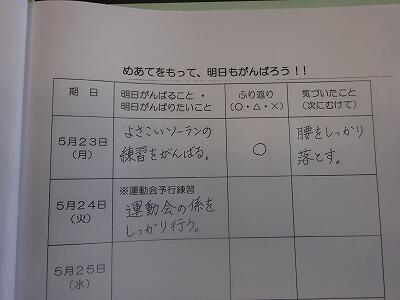 めあてをもって、明日もがんばろう！！
期　日
明日がんばること・
明日がんばりたいこと
ふり返り
（○・△・×）
気づいたこと
（次にむけて）
５月２３日
（月）
よさこいソーランの
練習をがんばる。
○
腰をしっかり
落とす。
５月２４日
（火）
※運動会予行練習
運動会の係を
しっかり行う。
５月２５日
（水）